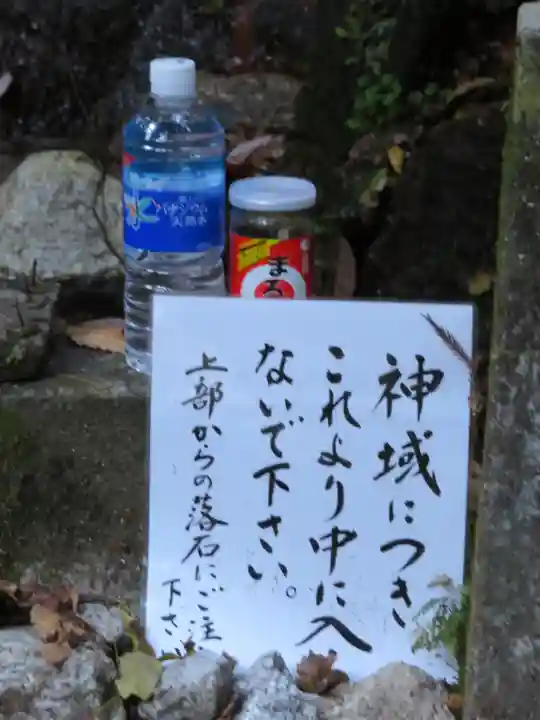 神域につき
これより中に入
ないで下さい。
上部からの落石にご注
下さい
バナジウム
天然水
まる